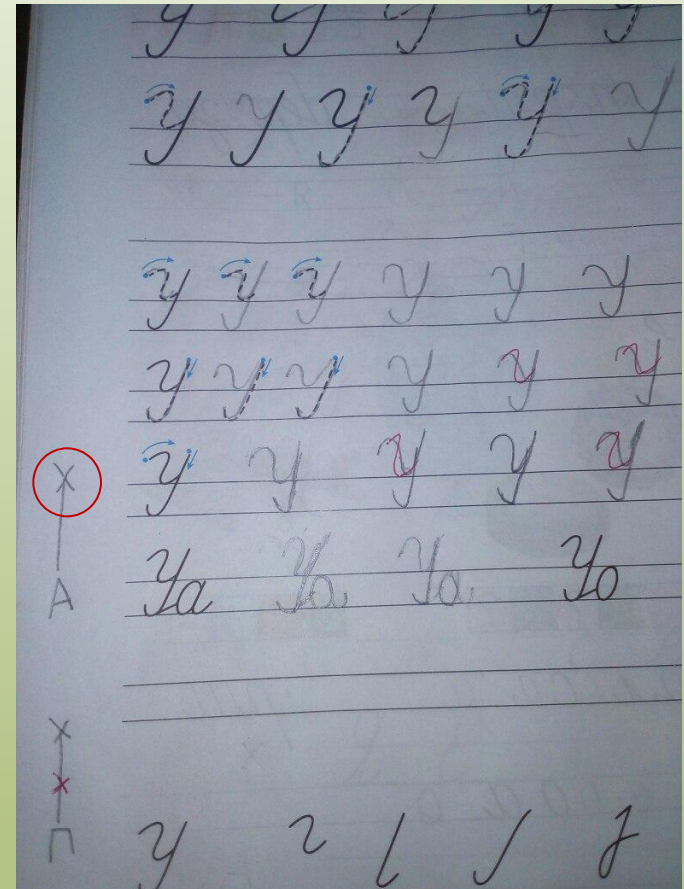 У У У У У
У У У У У У
У У У У У У
У У У У У У
У У У У У
Уа Уа Уа Уо
А
П
у